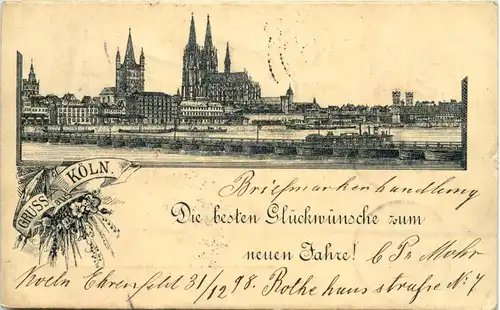 GRUSS aus KÖLN.
Briefmarkenhandlung
Die besten Glückwünsche zum
neuen Jahre! C Pr Mohr
Koeln Ehrenfeld 31/12 98. Rothehausstraße No 7